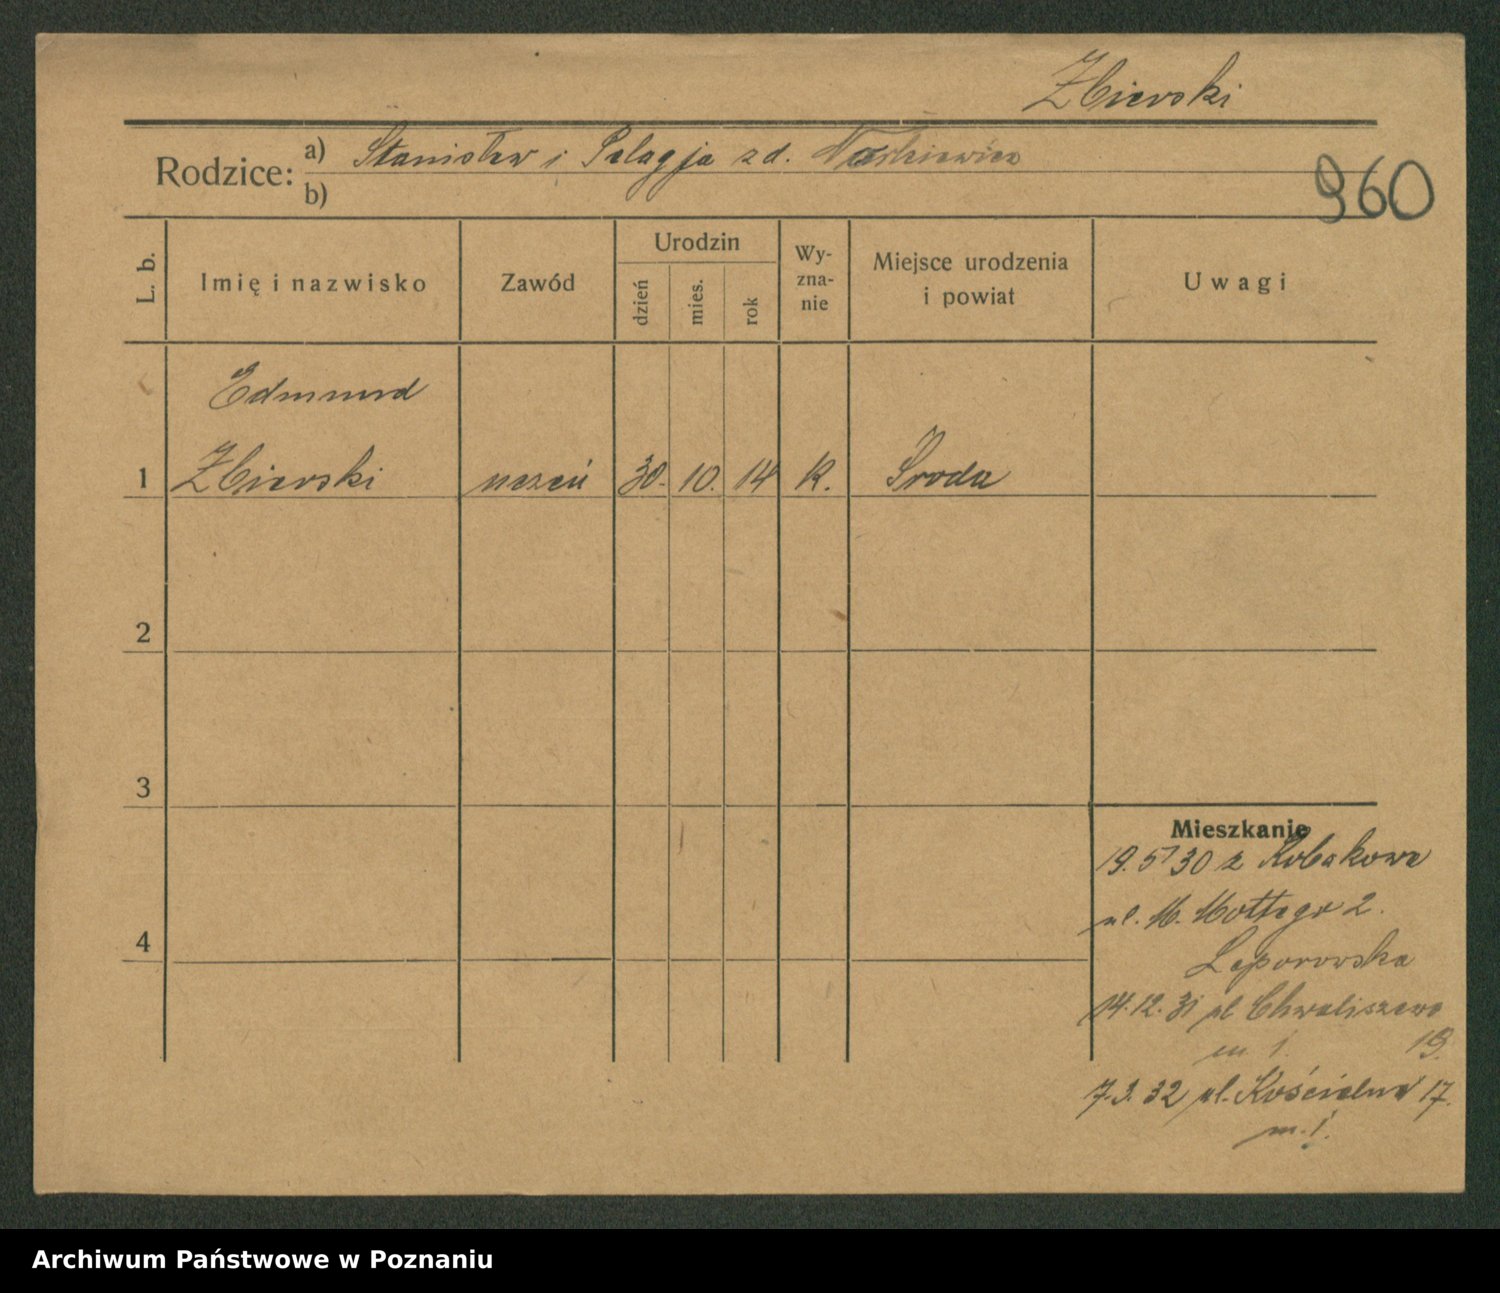 Zbierski
Rodzice: a) Stanisław i Pelagja zd.
b)
960
L. b. Imię i nazwisko Zawód Urodzin dzień mies. rok Wy-zna-nie Miejsce urodzenia i powiat Uwagi
Edmund
1 Zbierski uczeń 30. 10. 14 K. Środa
2
3
Mieszkanie
19. 5 30 z
4 ul. M. Mottego 2.
Leporowska
14. 12. 31 ul Chwaliszewo
m 1. 19.
7. 3. 32 ul. Kościelna 17.
m. 1.
Archiwum Państwowe w Poznaniu